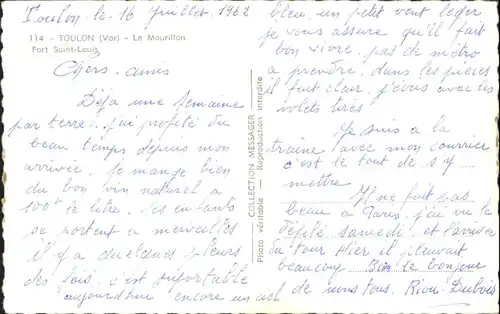 Toulon. le. 16 juillet. 1962
114 - TOULON (Var) - Le Mourillon
Fort Saint-Louis
Chers. amis
Déja une semaine
par terre. j'ai profité du
beau temps depuis mon
arrivée. je mange bien
du bon vin naturel a
100f le litre. les enfants
se portent a merveilles
il y a quelques pleurs
des fois. c'est suportable
aujourd'hui encore un ciel
COLLECTION MESSAGER
Photo véritable — Reproduction interdite
bleu. un petit vent léger
je vous assure qu'il fait
bon vivre. pas de métro
a prendre. dans les pièces
il fait clair. j'écris avec les
volets tirés.
Je suis a la
traine avec mon courrier
c'est le tout de s'y
mettre
Il ne fait pas
beau a Paris. j'ai vu le
défilé samedi. et l'arrivée
du tour Hier il pleuvait
beaucoup Bien le bonjour
de nous tous. Riou Dubois